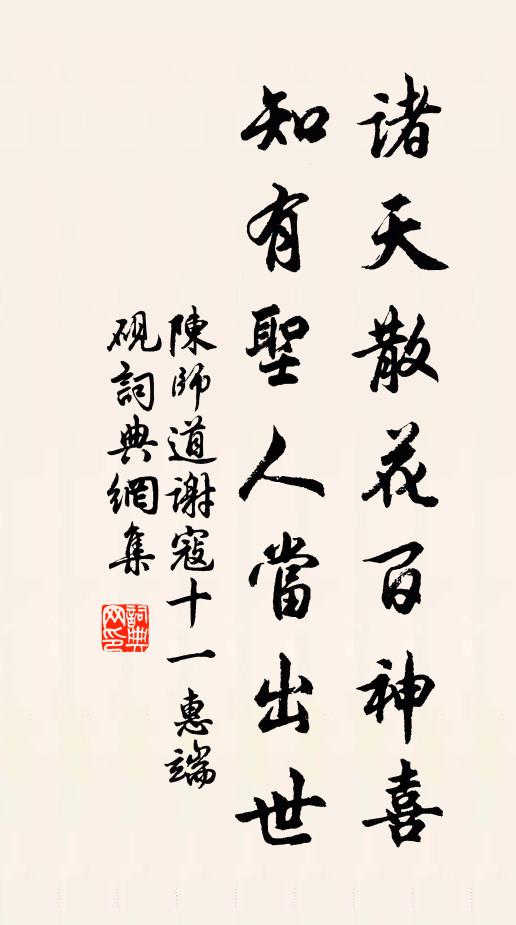 諸天散花百神喜
知有聖人當出世
陳師道謝寇十一惠端
硯詞典網集
詞典網印